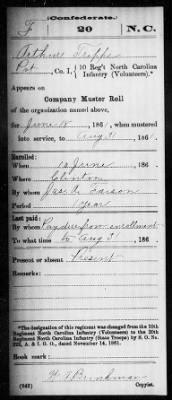 (Confederate.)
F 20 N.C.
Arthur Tripps
Pvt., Co. I, 10 Reg't North Carolina
Infantry (Volunteers).*
Appears on
Company Muster Roll
of the organization named above,
for June 18, 186 , when mustered
into service, to Aug 31, 186 .
Enlisted:
When 18 June, 186 .
Where Clinton
By whom Jas. A. Faison
Period 1 year
Last paid:
By whom Pay due from enrollment
To what time to Aug 31, 186 .
Present or absent Present
Remarks:
*The designation of this regiment was changed from the 10th
Regiment North Carolina Infantry (Volunteers) to the 20th
Regiment North Carolina Infantry (State Troops) by S. O. No.
222, A. & I. G. O., dated November 14, 1861.
Book mark:
(642) Copyist.